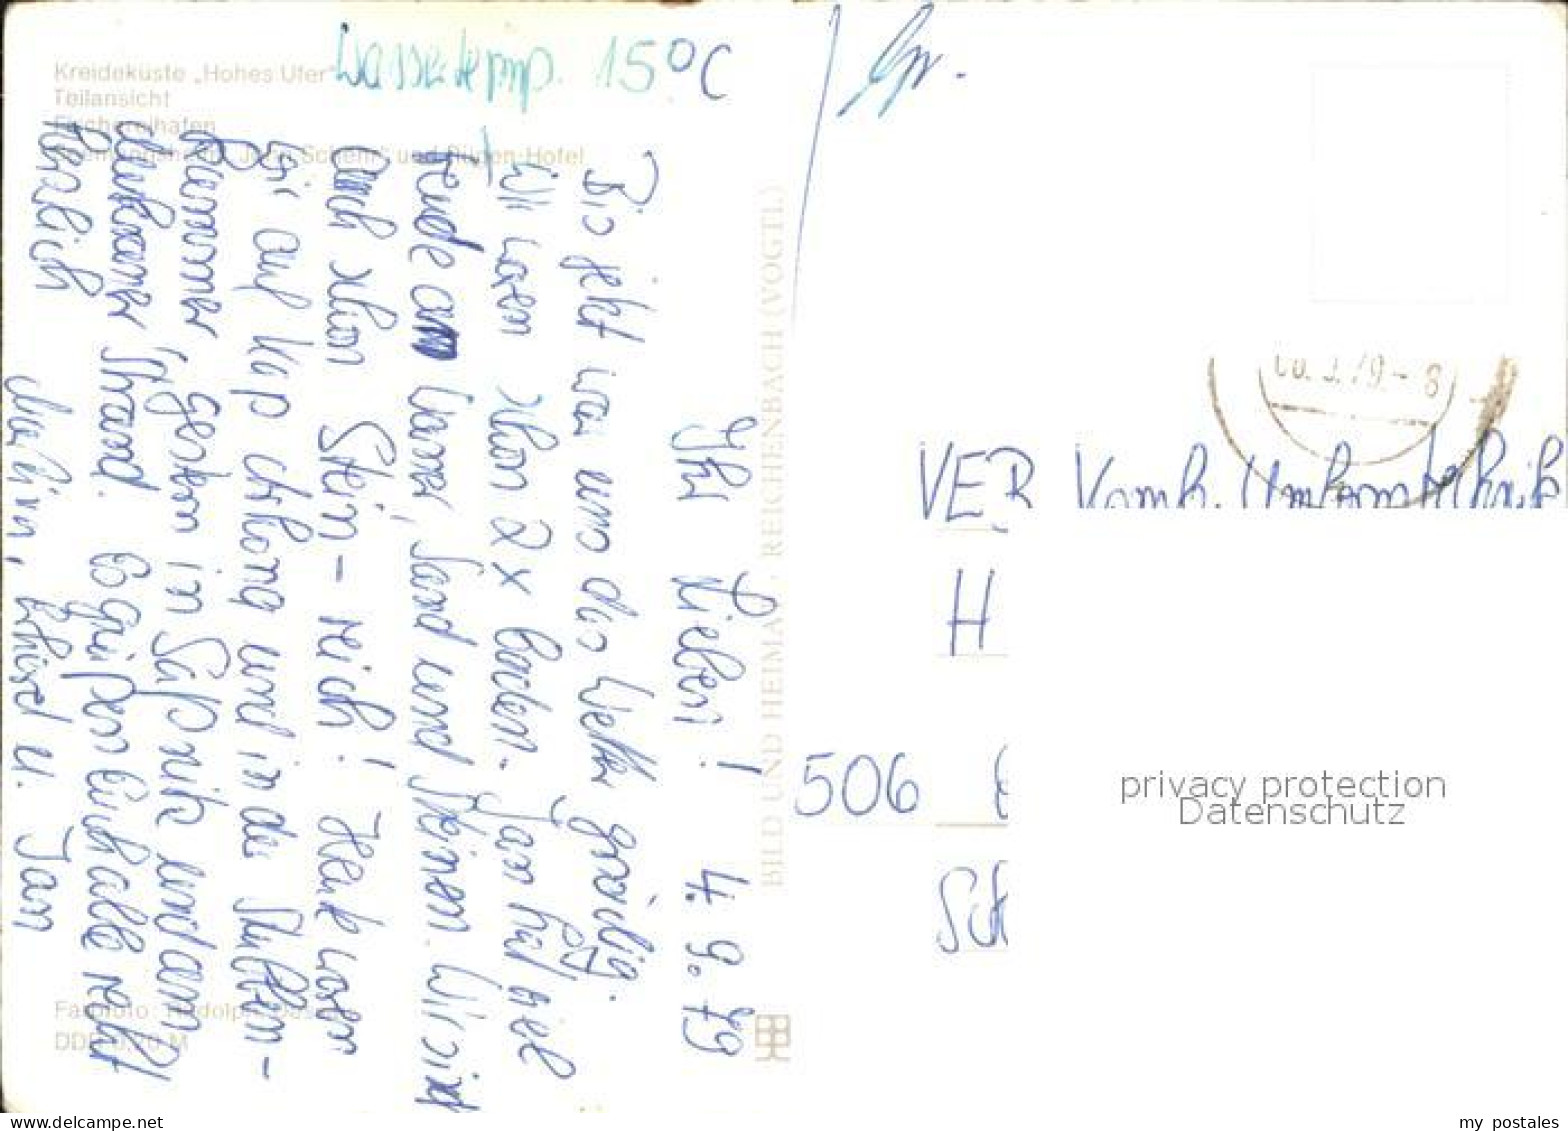 Kreideküste „Hohes Ufer“
Teilansicht
Fischereihafen
und Rügen-Hotel
Wassertemp. 15°C
Ihr Lieben! 4. 9. 79
Bis jetzt war uns das Wetter gnädig.
Wir waren schon 2x baden. Jan hat viel
Freude am Wasser, Sand und Steinen. Wir sind
auch schon Stein-reich! Heute waren
wir auf Kap Arkona und in der Stubben-
kammer, gestern in Saßnitz und am
Strand. Es grüßen Euch alle recht
herzlich
u. Jan
BILD UND HEIMAT, REICHENBACH (VOGTL)
Farbfoto: Rudolph, Dessau
DDR 0,20 M
VEB Komb. Umformtechnik
H
506 E
Sch
79-8
privacy protection
Datenschutz
delcampe.net
my_postales